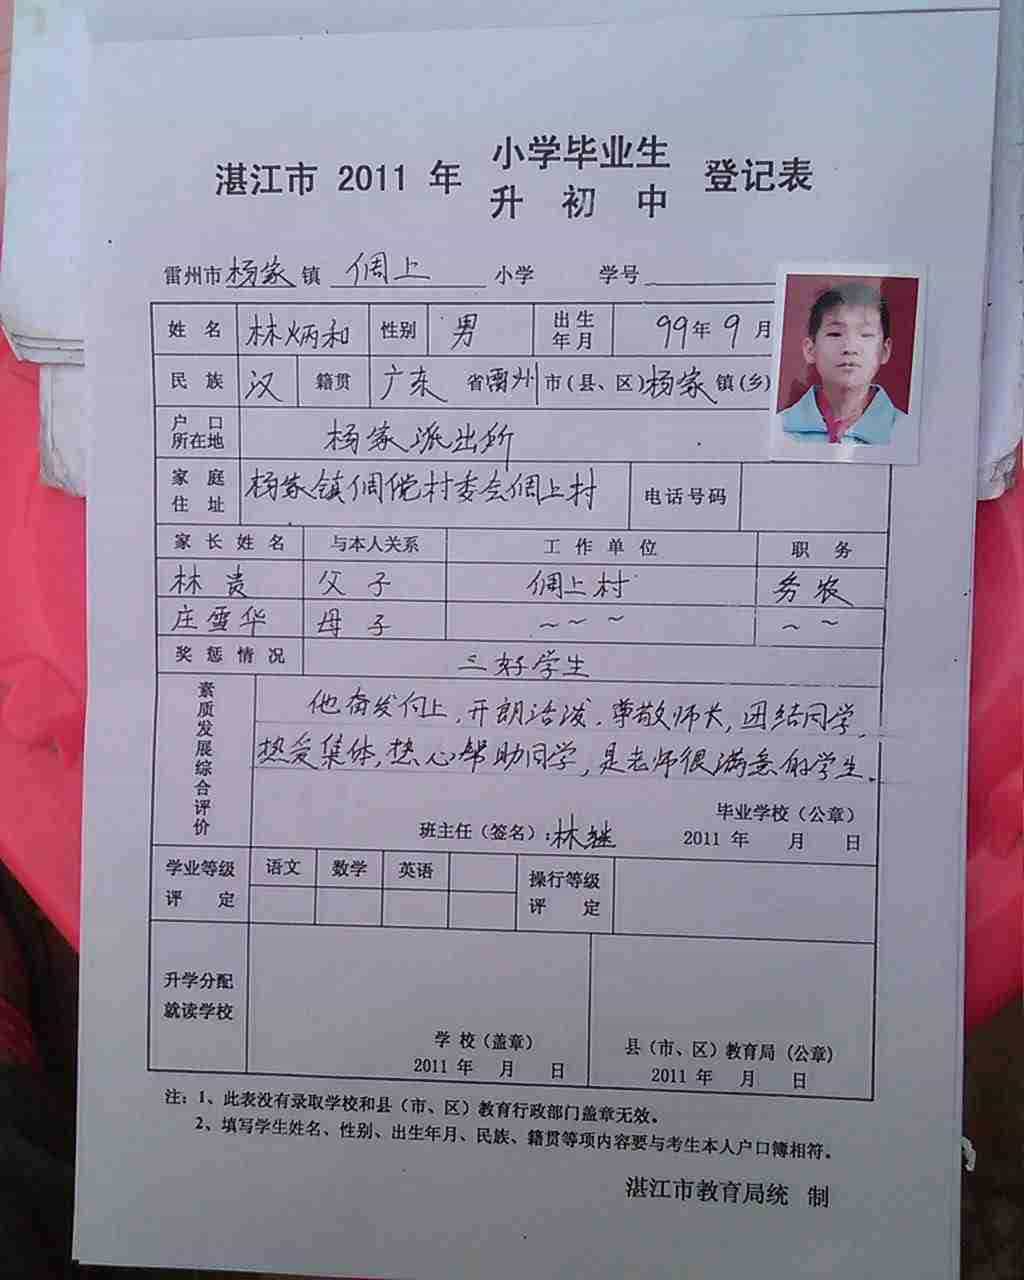 湛江市 2011 年 小学毕业生 登记表
升 初 中
雷州市杨家镇 倜上 小学 学号
姓 名 林炳和 性别 男 出生年月 99年9月
民 族 汉 籍贯 广东 省雷州市(县、区)杨家镇(乡)
户口所在地 杨家派出所
家庭住址 杨家镇倜傥村委会倜上村 电话号码
家长姓名 与本人关系 工作单位 职务
林贵 父子 倜上村 务农
庄雪华 母子 ~~~ ~~
奖惩情况 三好学生
素质发展综合评价 他奋发向上,开朗活泼,尊敬师长,团结同学,
热爱集体,热心帮助同学,是老师很满意的学生。
毕业学校(公章)
班主任(签名):林继 2011 年 月 日
学业等级评定 语文 数学 英语 操行等级评定
升学分配就读学校
学 校(盖章) 县(市、区)教育局(公章)
2011 年 月 日 2011 年 月 日
注:1、此表没有录取学校和县(市、区)教育行政部门盖章无效。
2、填写学生姓名、性别、出生年月、民族、籍贯等项内容要与考生本人户口簿相符。
湛江市教育局统 制